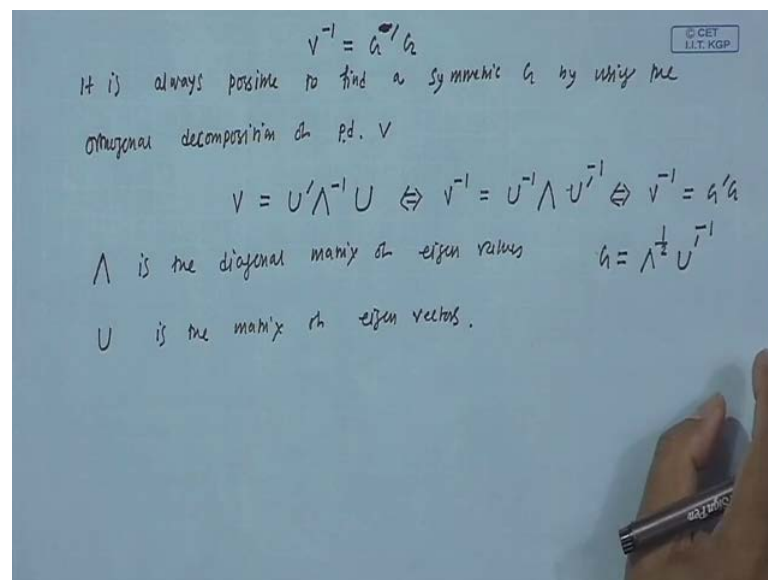 V⁻¹ = G'G
© CET
I.I.T. KGP
It is always possible to find a symmetric G by using the
orthogonal decomposition of p.d. V
V = U'Λ⁻¹U ⇔ V⁻¹ = U⁻¹ΛU'⁻¹ ⇔ V⁻¹ = G'G
Λ is the diagonal matrix of eigen values G = Λ^½ U'⁻¹
U is the matrix of eigen vectors.
Sign Pen